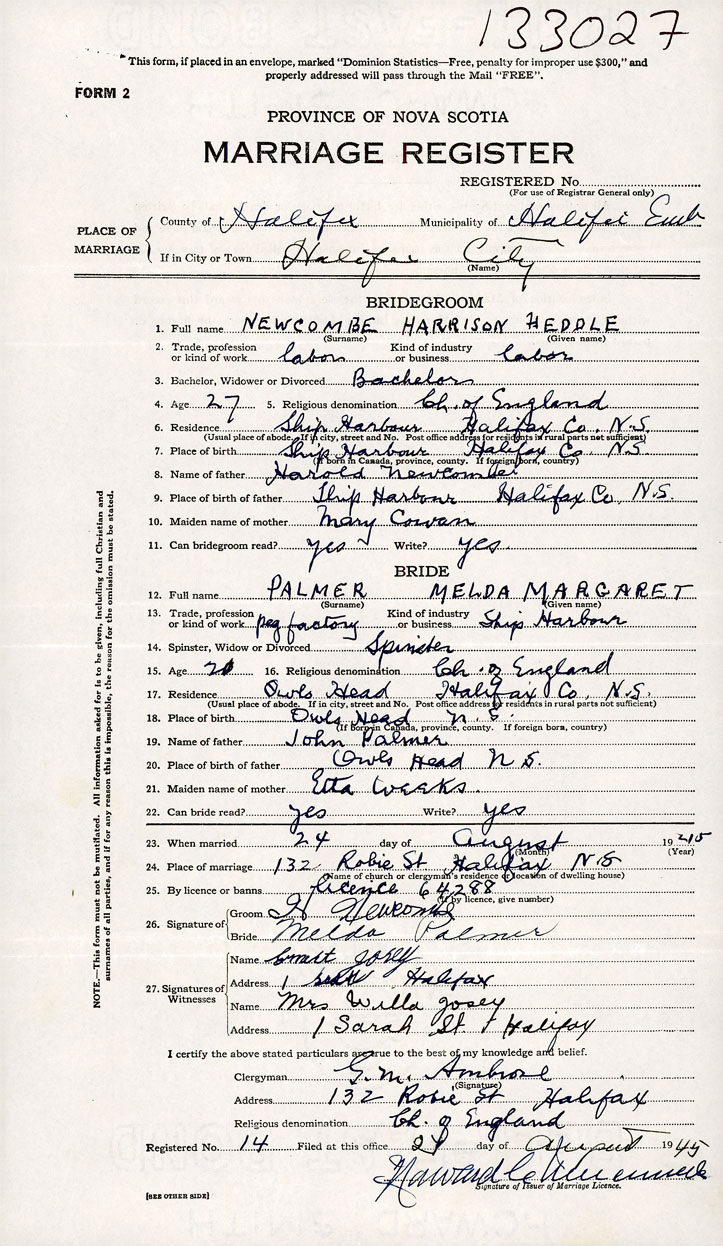 133027
"This form, if placed in an envelope, marked "Dominion Statistics—Free, penalty for improper use $300," and
properly addressed will pass through the Mail "FREE".
FORM 2
PROVINCE OF NOVA SCOTIA
MARRIAGE REGISTER
REGISTERED No.
(For use of Registrar General only)
PLACE OF MARRIAGE
County of Halifax Municipality of Halifax
If in City or Town Halifax City
(Name)
BRIDEGROOM
1. Full name NEWCOMBE HARRISON HEDDLE
(Surname) (Given name)
2. Trade, profession or kind of work labor Kind of industry or business labor
3. Bachelor, Widower or Divorced Bachelor
4. Age 27 5. Religious denomination Ch. of England
6. Residence Ship Harbour Halifax Co. N.S.
(Usual place of abode. If in city, street and No. Post office address for residents in rural parts not sufficient)
7. Place of birth Ship Harbour Halifax Co. N.S.
(If born in Canada, province, county. If foreign born, country)
8. Name of father Harold Newcombe
9. Place of birth of father Ship Harbour Halifax Co. N.S.
10. Maiden name of mother Mary Cowan
11. Can bridegroom read? yes Write? yes.
BRIDE
12. Full name PALMER MELDA MARGARET
(Surname) (Given name)
13. Trade, profession or kind of work peg factory Kind of industry or business Ship Harbour
14. Spinster, Widow or Divorced Spinster
15. Age 20 16. Religious denomination Ch. of England
17. Residence Owls Head Halifax Co, N.S.
(Usual place of abode. If in city, street and No. Post office address for residents in rural parts not sufficient)
18. Place of birth Owls Head N.S.
(If born in Canada, province, county. If foreign born, country)
19. Name of father John Palmer
20. Place of birth of father Owls Head N.S.
21. Maiden name of mother Etta Weeks.
22. Can bride read? yes Write? yes
23. When married 24 day of August 1945
(Month) (Year)
24. Place of marriage 132 Robie St Halifax N.S
(Name of church or clergyman's residence or location of dwelling house)
25. By licence or banns licence 64288
(If by licence, give number)
26. Signature of
Groom H Newcombe
Bride Melda Palmer
27. Signatures of Witnesses
Name Josey
Address 1 Halifax
Name Mrs Willa Josey
Address 1 Sarah St Halifax
I certify the above stated particulars are true to the best of my knowledge and belief.
Clergyman G. M. Ambrose
(Signature)
Address 132 Robie St Halifax
Religious denomination Ch. of England
Registered No. 14 Filed at this office day of August 1945
Howard
Signature of Issuer of Marriage Licence.
[SEE OTHER SIDE]
NOTE.—This form must not be mutilated. All information asked for is to be given, including full Christian and
surnames of all parties, and if for any reason this is impossible, the reason for the omission must be stated.